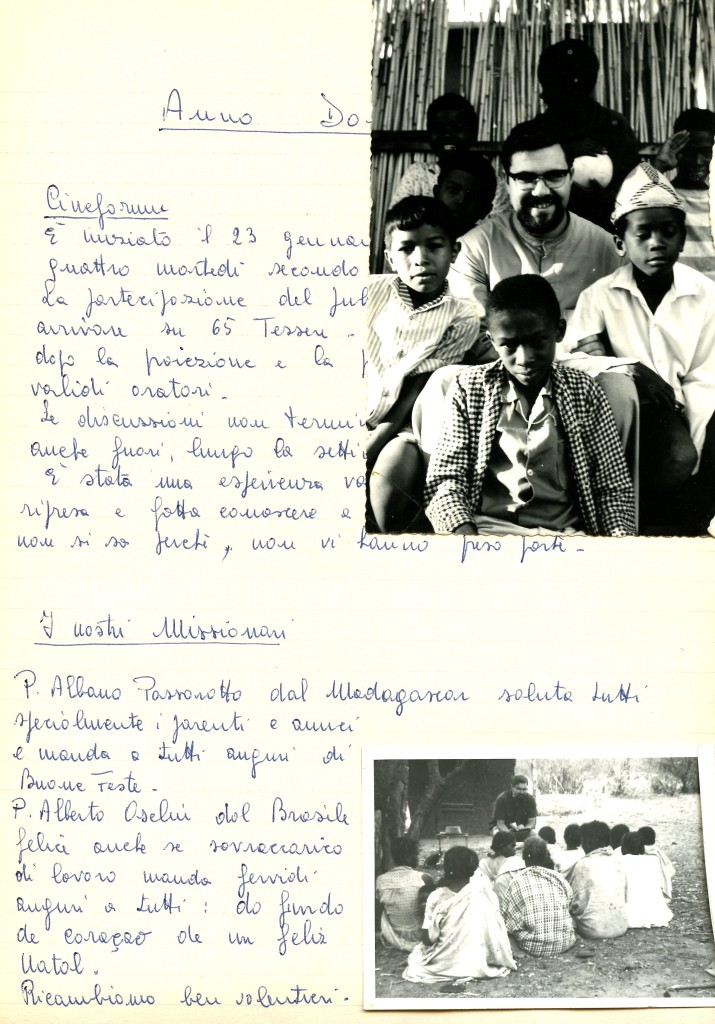 Anno Do
Cineforum
È iniziato il 23 gennai
quattro martedì secondo
La partecipazione del pub
arrivare su 65 Tessere -
dopo la proiezione e la p
validi oratori.
Le discussioni non termin
anche fuori, lungo la setti
È stata una esperienza va
ripresa e fatta conoscere a
non si sa perchè, non vi hanno preso parte -
I nostri Missionari
P. Albano Passarotto dal Madagascar saluta tutti
specialmente i parenti e amici
e manda a tutti auguri di
Buone Feste -
P. Alberto dal Brasile
felice anche se sovraccarico
di lavoro manda fervidi
auguri a tutti: do fundo
de coraçao de um feliz
Natal.
Ricambiamo ben volentieri -